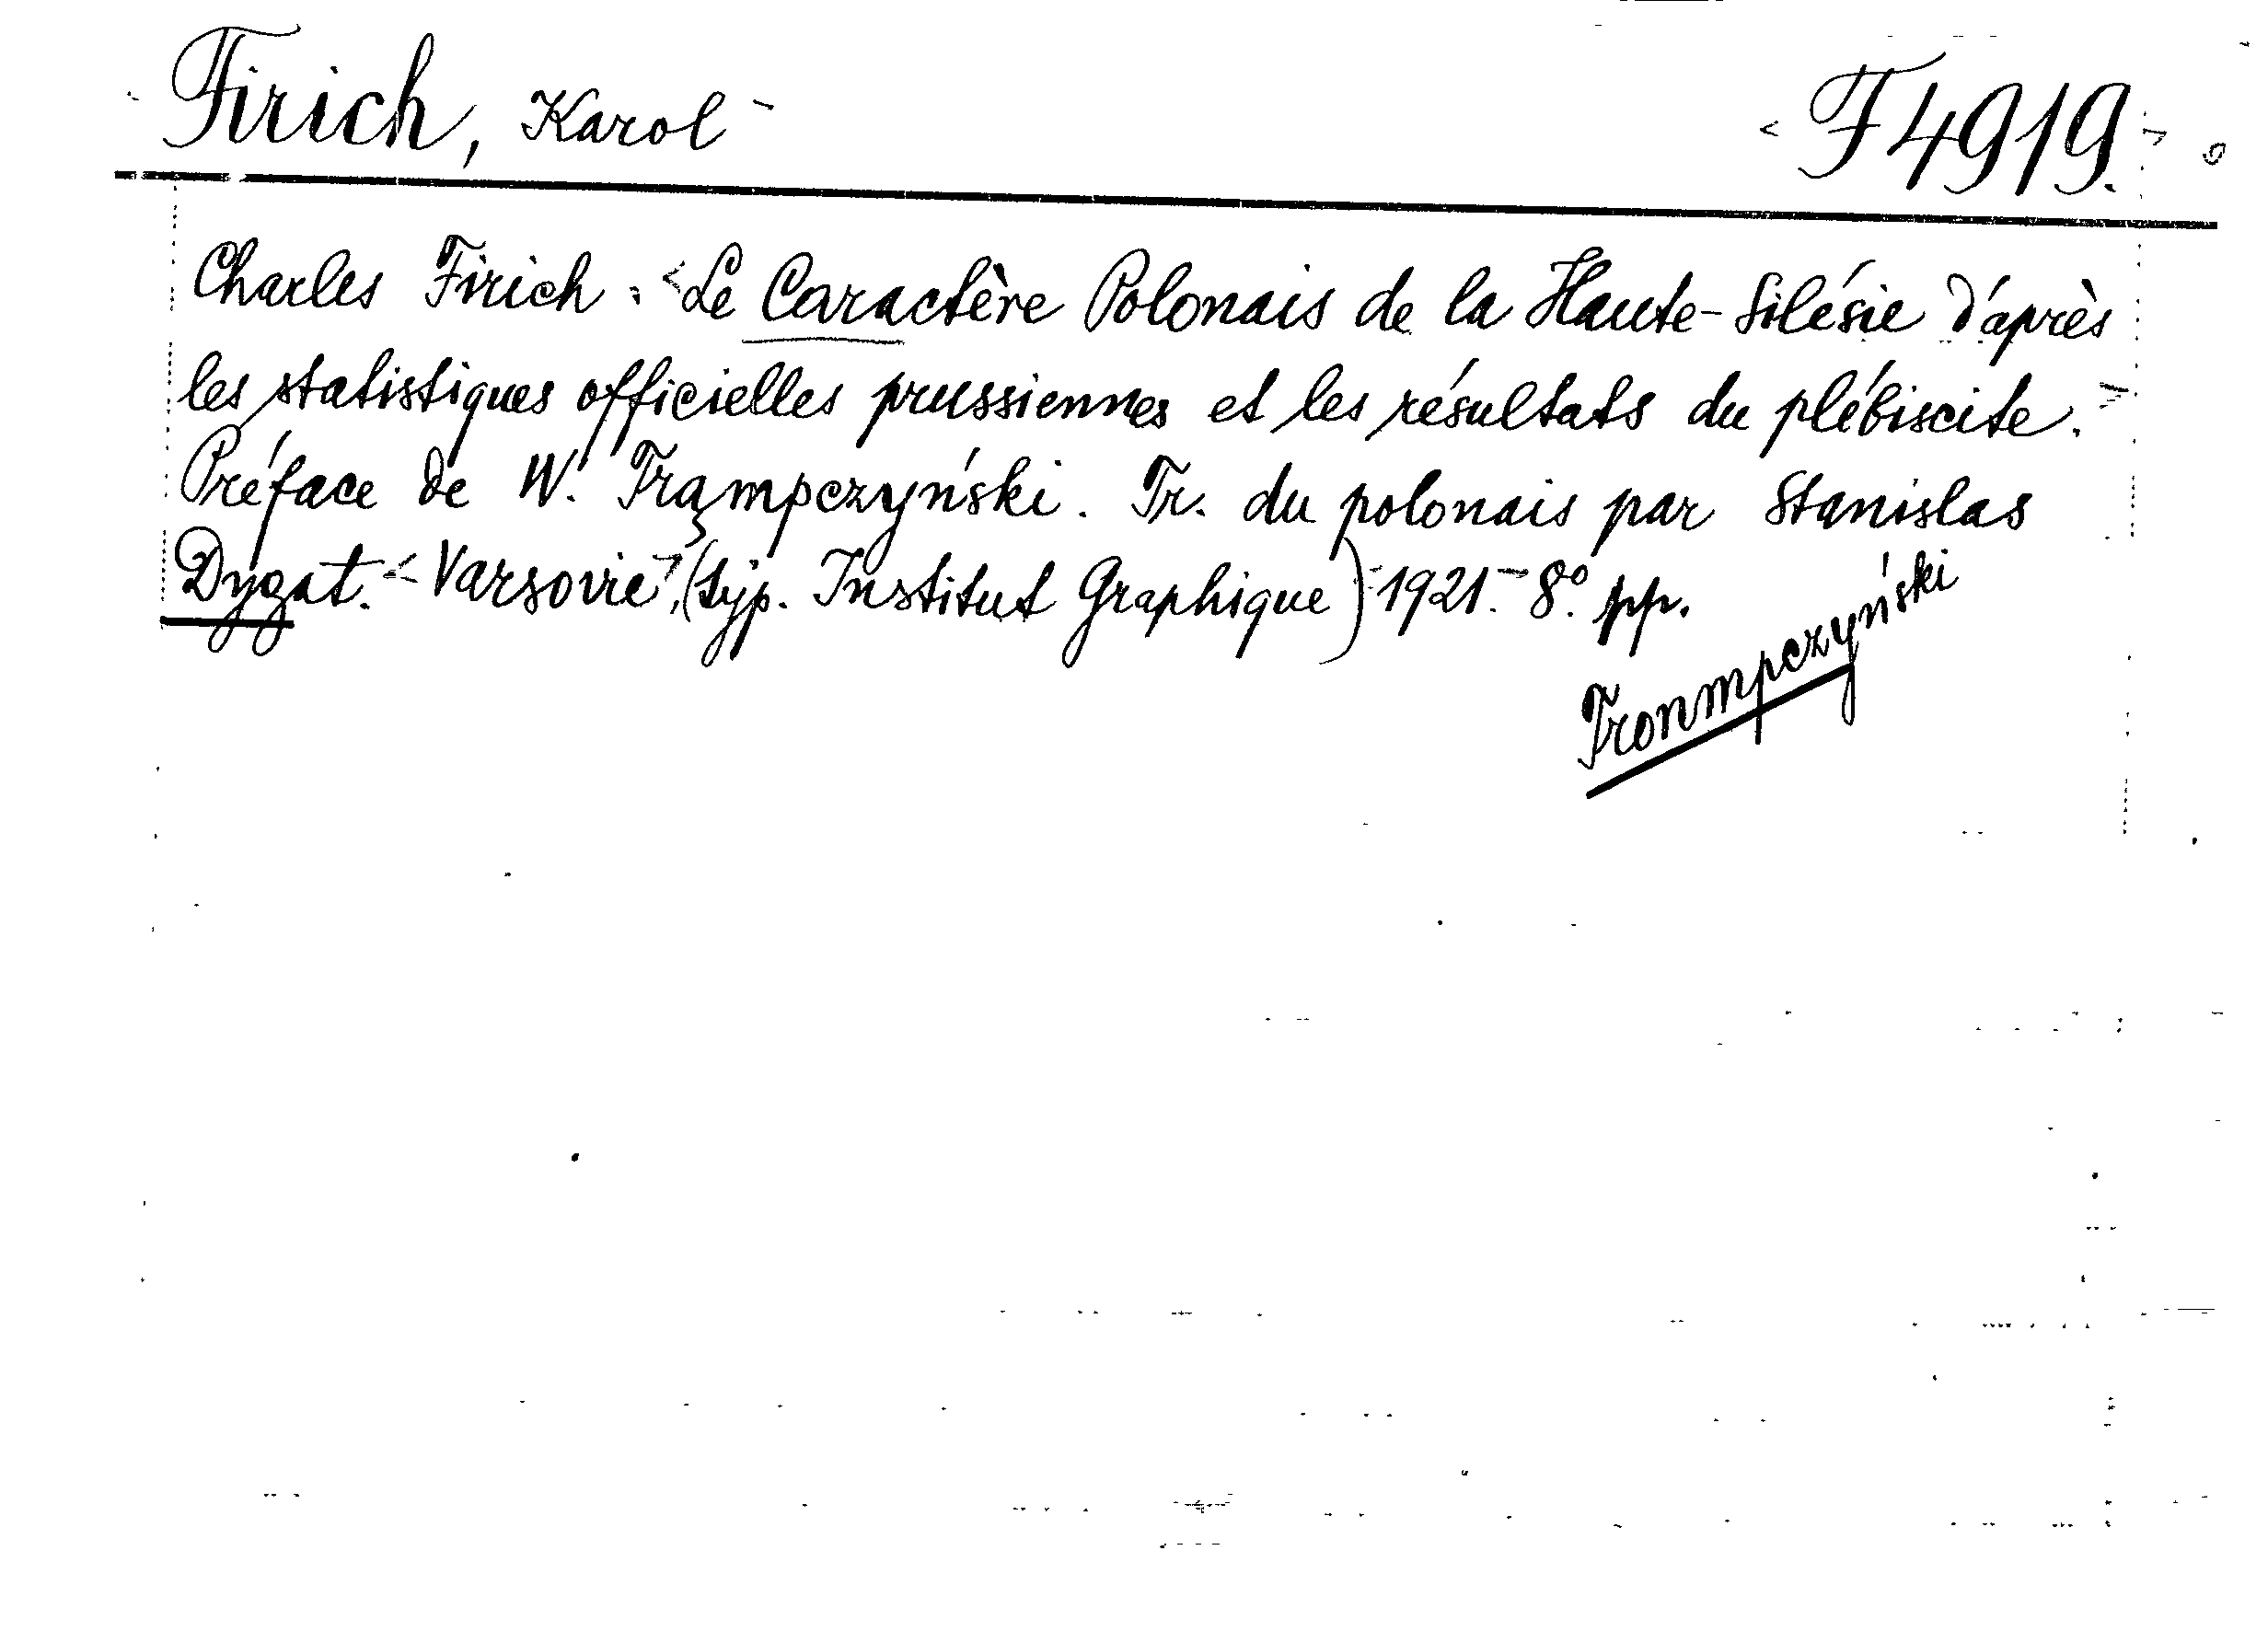 Firich, Karol F4919.
Charles Firich. Le Caractère Polonais de la Haute-Silésie d'après
les statistiques officielles prussiennes et les résultats du plébiscite.
Préface de W. Trąmpczyński. Tr. du polonais par Stanislas
Dygat. Varsovie, (typ. Institut Graphique) 1921. 8º. pp.
Tronmpczyński